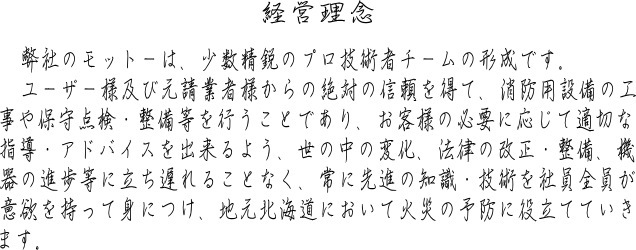 経営理念
弊社のモットーは、少数精鋭のプロ技術者チームの形成です。
ユーザー様及び元請業者様からの絶対の信頼を得て、消防用設備の工
事や保守点検・整備等を行うことであり、お客様の必要に応じて適切な
指導・アドバイスを出来るよう、世の中の変化、法律の改正・整備、機
器の進歩等に立ち遅れることなく、常に先進の知識・技術を社員全員が
意欲を持って身につけ、地元北海道において火災の予防に役立てていき
ます。